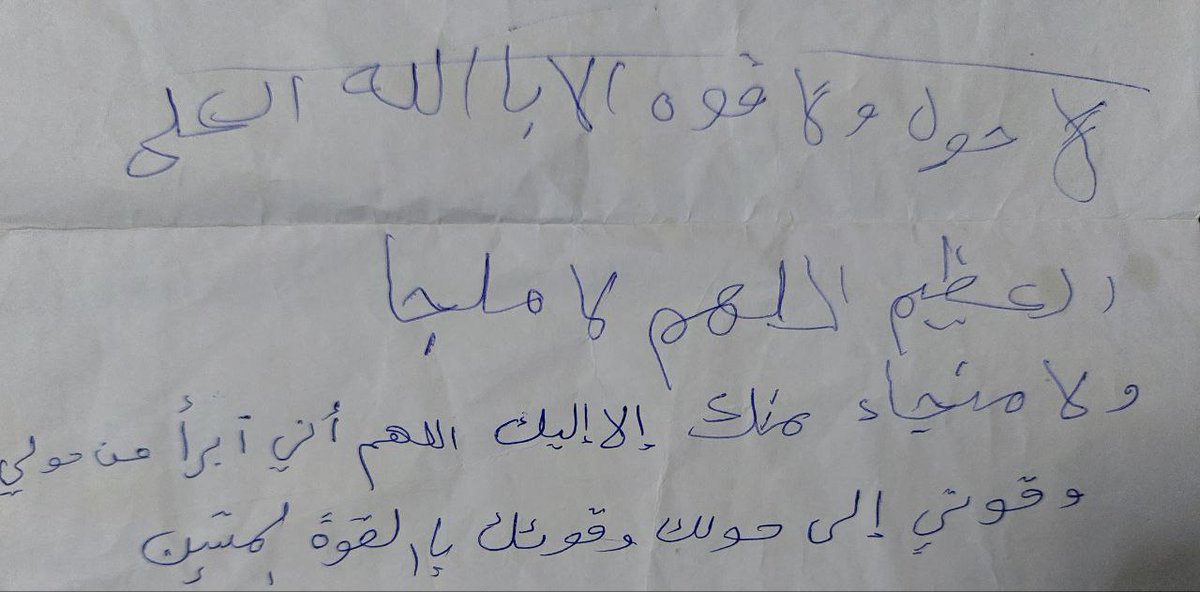 لا حول ولا قوه الا باالله العلي
العظيم اللهم لا ملجا
ولا منجاء منك إلا إليك اللهم أني آبرأ من حولي
وقوتي إلى حولك وقوتك يا القوة